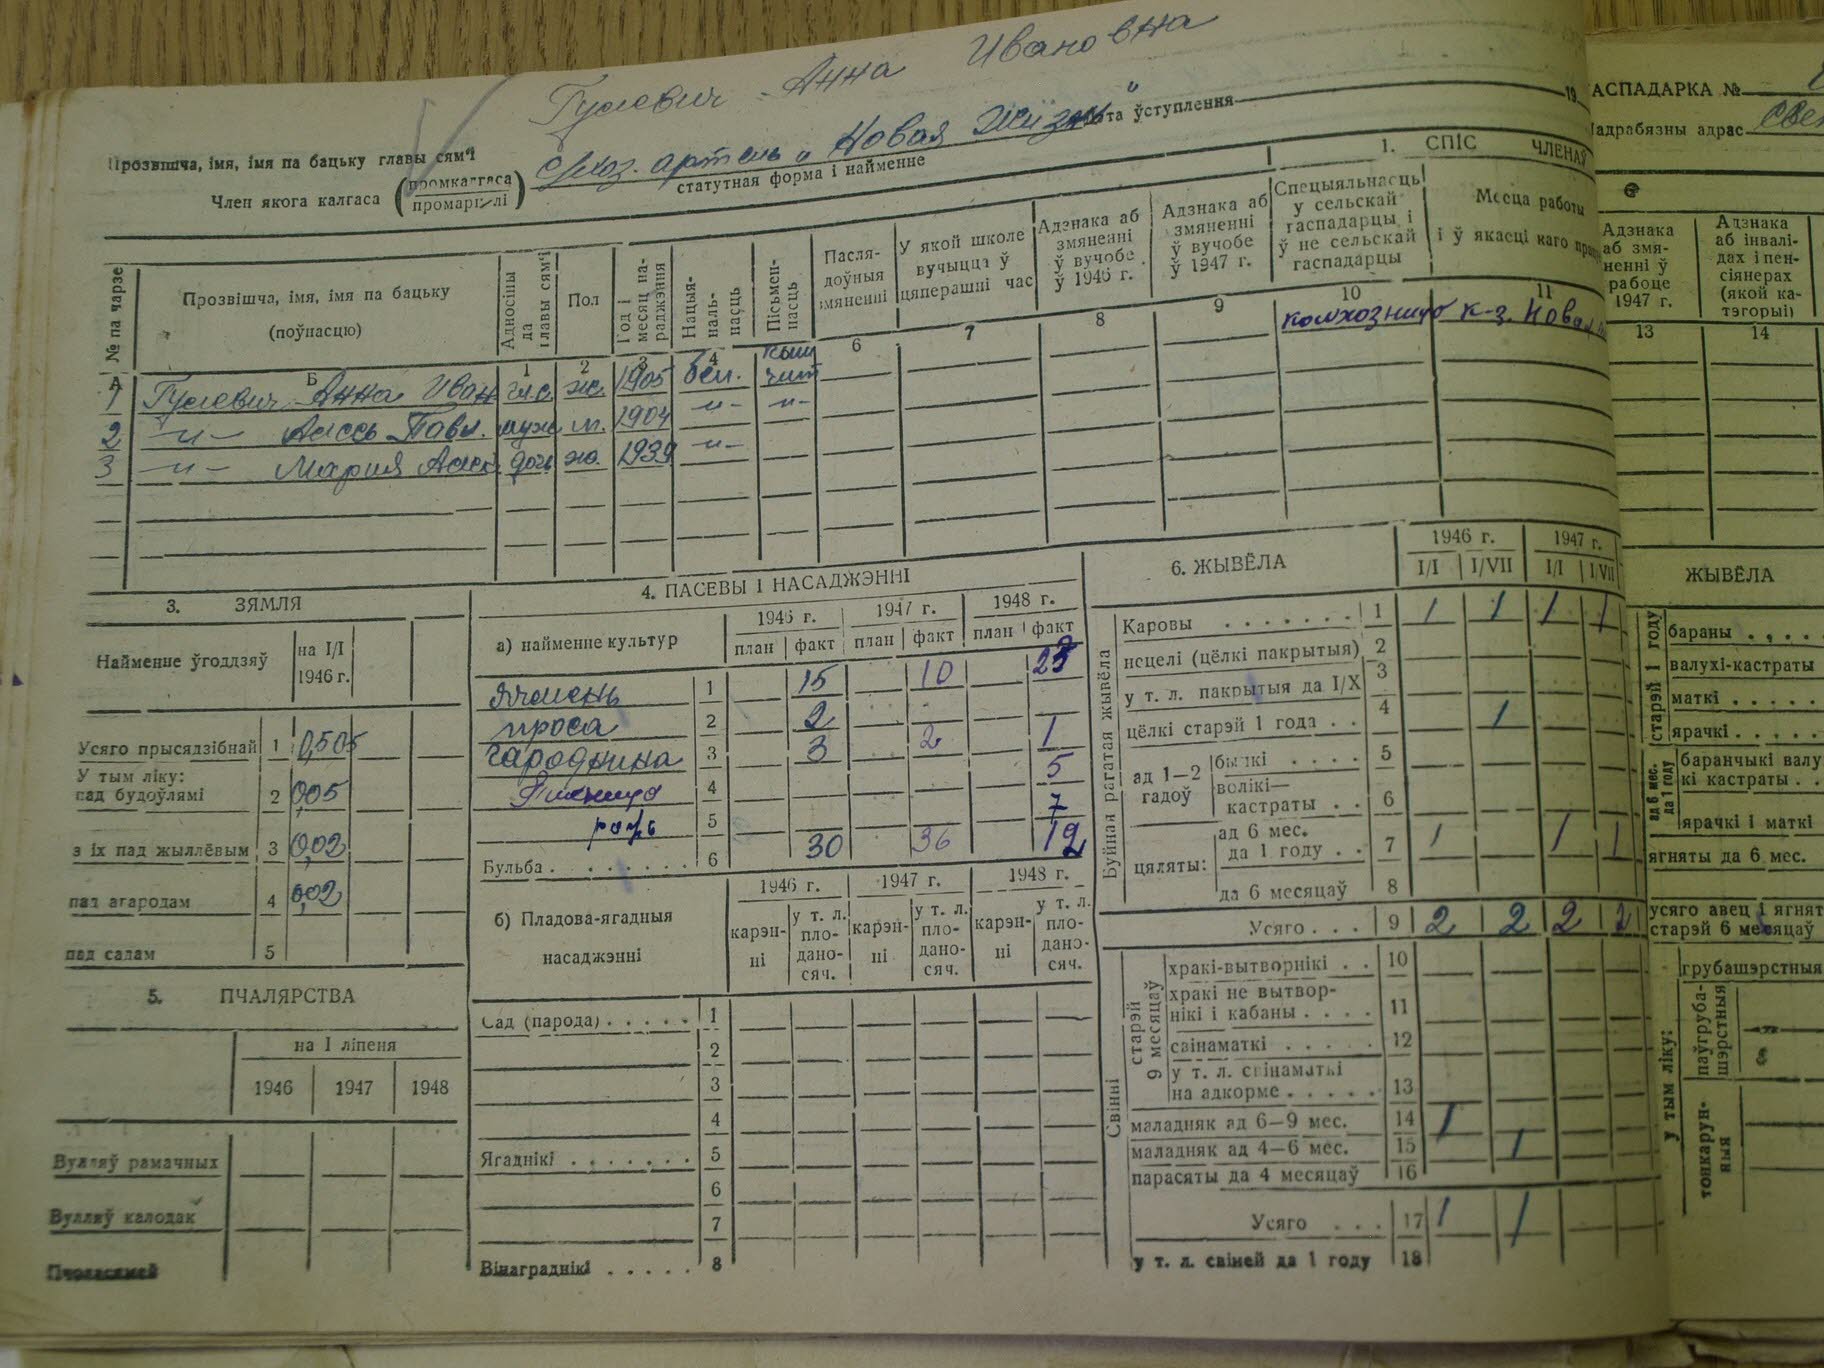 Гулевич Анна Ивановна
Прозвішча, імя, імя па бацьку главы сям'і
Член якога калгаса (промкалгаса промарцелі) с/хоз. артель „Новая Жизнь" дата ўступлення 19
статутная форма і найменне
1. СПІС ЧЛЕНАЎ
№ па чарзе
Прозвішча, імя, імя па бацьку (поўнасцю)
Адносіны да главы сям'і
Пол
Год і месяц нараджэння
Нацыянальнасць
Пісьменнасць
Паслядоўныя змяненні
У якой школе вучыцца ў цяперашні час
Адзнака аб змяненні ў вучобе ў 1946 г.
Адзнака аб змяненні ў вучобе ў 1947 г.
Спецыяльнасць у сельскай гаспадарцы і ў не сельскай гаспадарцы
Месца работы і ў якасці каго
А Б 1 2 3 4 6 7 8 9 10 11
1 Гулевич Анна Иван гл.с. ж. 1905 бел. чит колхозница к-з. Новая
2 -"- Павл. муж м. 1904 -"- -"-
3 -"- Мария дочь ж. 1939 -"-
3. ЗЯМЛЯ
Найменне ўгоддзяў на I/I 1946 г.
Усяго прысядзібнай 1 0,505
У тым ліку:
пад будоўлямі 2 0,05
з іх пад жыллёвым 3 0,02
пад агародам 4 0,02
пад садам 5
5. ПЧАЛЯРСТВА
на I ліпеня
1946 1947 1948
Вулляў рамачных
Вулляў калодак
Пчоласямей
4. ПАСЕВЫ І НАСАДЖЭННІ
а) найменне культур 1946 г. 1947 г. 1948 г.
план факт план факт план факт
Ячмень 1 15 10
проса 2 2
гароднина 3 3 2 1
Пшеница 4 5
рожь 5 7
Бульба 6 30 36 12
б) Пладова-ягадныя насаджэнні 1946 г. 1947 г. 1948 г.
карэнні у т. л. пладаносяч. карэнні у т. л. пладаносяч. карэнні у т. л. пладаносяч.
Сад (парода) 1
2
3
4
Ягаднікі 5
6
7
Вінаграднікі 8
6. ЖЫВЁЛА 1946 г. 1947 г.
I/I I/VII I/I I/VII
Буйная рагатая жывёла
Каровы 1 1 1 1 1
нецелі (цёлкі пакрытыя) 2
у т. л. пакрытыя да I/X 3
цёлкі старэй 1 года 4 1
ад 1—2 гадоў
бычкі 5
волікі—кастраты 6
цяляты:
ад 6 мес. да 1 году 7 1 1 1
да 6 месяцаў 8
Усяго 9 2 2 2 2
Свінні
старэй 9 месяцаў
хракі-вытворнікі 10
хракі не вытворнікі і кабаны 11
свінаматкі 12
у т. л. свінаматкі на адкорме 13
маладняк ад 6—9 мес. 14 1
маладняк ад 4—6 мес. 15 1
парасяты да 4 месяцаў 16
Усяго 17 1 1
у т. л. свіней да 1 году 18
АСПАДАРКА №
адрабязны адрас
Адзнака аб змяненні ў рабоце 1947 г.
Адзнака аб інвалідах і пенсіянерах (якой катэгорыі)
13 14
ЖЫВЁЛА
старэй 1 году
бараны
валухі-кастраты
маткі
ярачкі
ад 6 мес. да 1 году
баранчыкі валу
кі кастраты
ярачкі і маткі
ягняты да 6 мес.
усяго авец і ягнят
старэй 6 месяцаў
У тым ліку:
грубашэрстныя
паўгрубашэрстныя
тонкарунныя